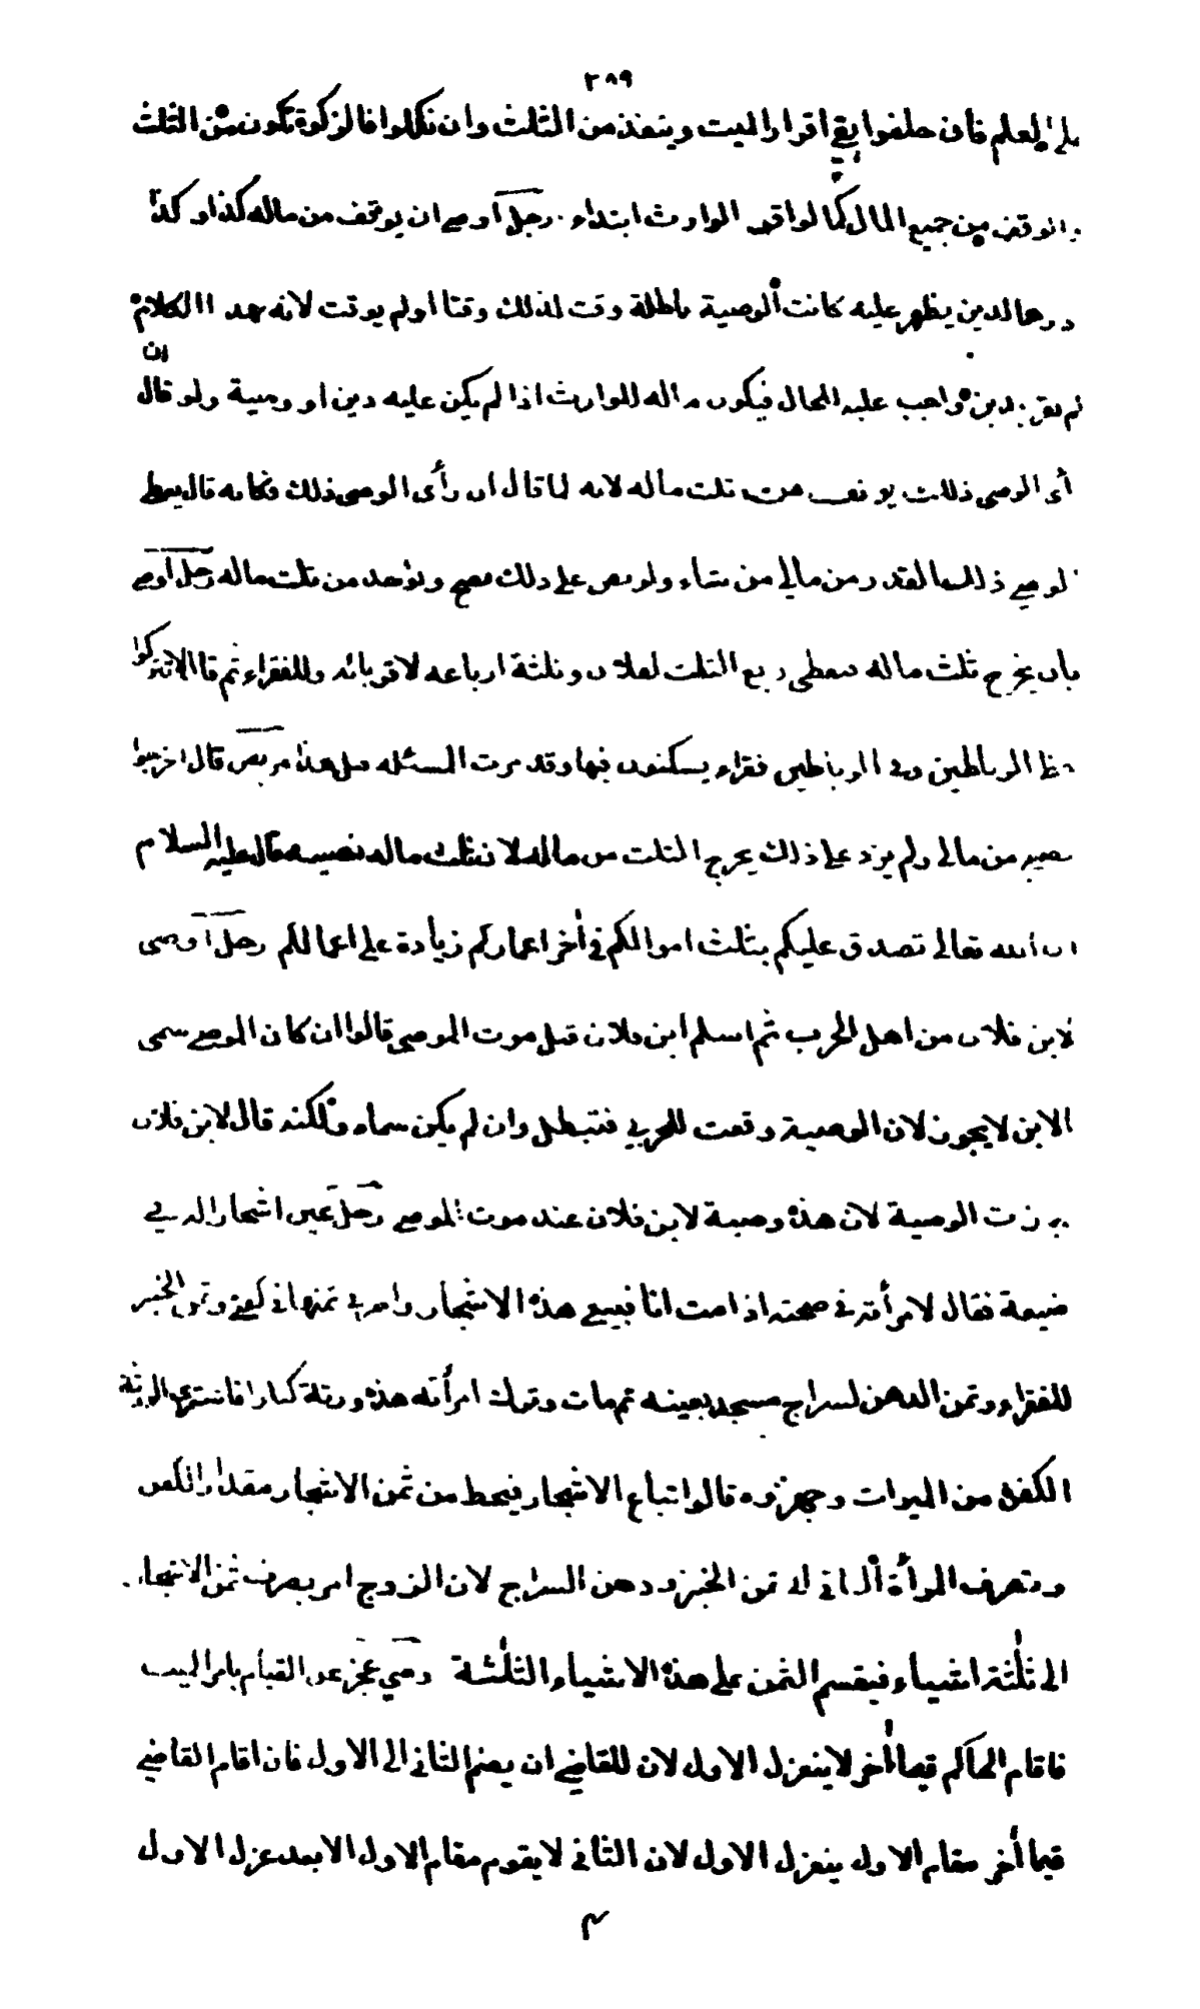 ٣٨٩
على العلم فان حلفوا بقي اقرار الميت وينفذ من الثلث وان نكلوا فالزكوة تكون من الثلث
والوقف من جميع المال كما لو اقر الوارث ابتداء رجل اوصى ان يوقف من ماله كذا وكذا
درهما لدين يظهر عليه كانت الوصية باطلة وقت لذلك وقتا اولم يوقت لانه بهذا الكلام
لم يقر بدين واجب عليه للحال فيكون ماله للوارث اذا لم يكن عليه دين او وصية ولو قال ان
رأى الوصي ذلك يوقف من ثلث ماله لانه لما قال ان رأى الوصي ذلك فكانه قال يعطى
الوصي ذلك القدر من مالي من شاء ولو نص على ذلك صح ويؤخذ من ثلث ماله رجل اوصى
بان يخرج ثلث ماله فيعطى ربع الثلث لفلان وثلثة ارباعه لاقربائه وللفقراء ثم قال لا تتركوا
حظ الرباطين وفي الرباطين فقراء يسكنون فيها وقد مرت المسئله قبل هذا مريض قال اخرجوا
نصيبي من مالي ولم يزد على ذلك يخرج الثلث من ماله لان ثلث ماله نصيبه قال عليه السلام
ان الله تعالى تصدق عليكم بثلث اموالكم في أخر اعماركم زيادة على اعمالكم رجل اوصى
لابن فلان من اهل الحرب ثم اسلم ابن فلان قبل موت الموصي قالوا ان كان الموصي سمى
الابن لا يجوز لان الوصية وقعت للحربي فتبطل وان لم يكن سماه ولكنه قال لابن فلان
جازت الوصية لان هذه وصية لابن فلان عند موت الموصي رجل عين اشجارا له في
ضيعة فقال لامرأته في صحته اذا مت انا فبيعي هذه الاشجار واصرفي ثمنها في كفني وثمن الخبز
للفقراء وثمن الدهن لسراج مسجد بعينه ثم مات وترك امرأته هذه وورثة كبارا فاشترى الورثة
الكفن من الميراث وجهزوه قالوا تباع الاشجار فيحط من ثمن الاشجار مقدار الكفن
وتصرف المرأة الباقي الى ثمن الخبز ودهن السراج لان الزوج امر بصرف ثمن الاشجار
الى ثلثة اشياء فيقسم الثمن على هذه الاشياء الثلثة وصي عجز عن القيام بامر الميت
فاقام الحاكم قيما أخر لا ينعزل الاول لان للقاضي ان يضم الثاني الى الاول فان اقام القاضي
قيما أخر مقام الاول ينعزل الاول لان الثاني لا يقوم مقام الاول الا بعد عزل الاول